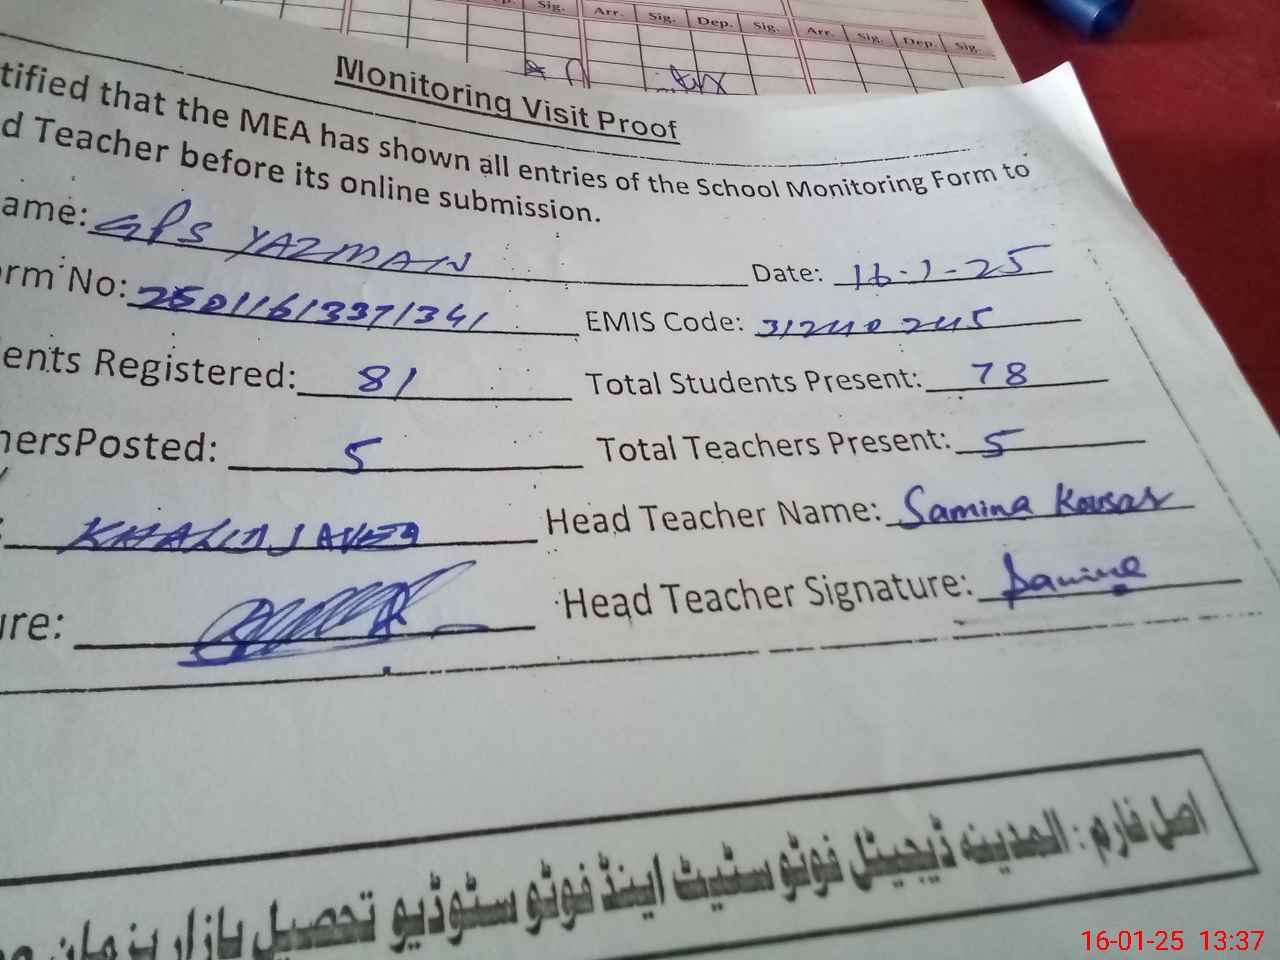 Sig. Arr. Sig. Dep. Sig. Arr. Sig. Dep. Sig.
Monitoring Visit Proof
tified that the MEA has shown all entries of the School Monitoring Form to
d Teacher before its online submission.
ame: GPS YAZMAN Date: 16-1-25
orm No: 25011613371341 EMIS Code: 31240245
ents Registered: 81 Total Students Present: 78
hersPosted: 5 Total Teachers Present: 5
KHALID JAVED Head Teacher Name: Samina Kousar
ure: Head Teacher Signature: Samina
اصل فارم : المدینہ ڈیجیٹل فوٹو سٹیٹ اینڈ فوٹو سٹوڈیو تحصیل بازار یزمان
16-01-25 13:37